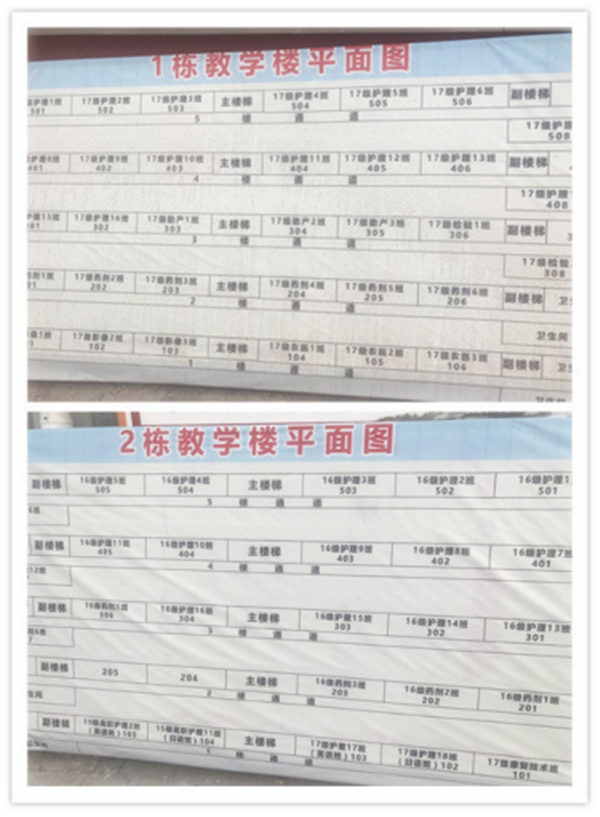 1栋教学楼平面图
17级护理2班 17级护理3班 主楼梯 17级护理4班 17级护理5班 17级护理6班 副楼梯
501 502 503 504 505 506
5 楼 通 道
17级护理
508
17级护理10班 主楼梯 17级护理11班 17级护理12班 17级护理13班 副楼梯
401 402 403 404 405 406
4 楼 通 道
17级护理
408
17级护理16班 17级助产1班 主楼梯 17级助产2班 17级助产3班 17级检验1班 副楼梯
302 303 304 305 306
3 楼 通 道
17级检验
308
17级药剂2班 17级药剂3班 主楼梯 17级药剂4班 17级药剂5班 17级药剂6班 副楼梯
202 203 204 205 206
2 楼 通 道
卫生间
17级影像2班 17级影像3班 主楼梯 17级农医1班 17级农医2班 17级农医3班 副楼梯
102 103 104 105 106
1 楼 通 道
2栋教学楼平面图
副楼梯 16级护理5班 16级护理4班 主楼梯 16级护理3班 16级护理2班 16级护理1
505 504 503 502 501
5 楼 通 道
副楼梯 16级护理11班 16级护理10班 主楼梯 16级护理9班 16级护理8班 16级护理7班
405 404 403 402 401
4 楼 通 道
副楼梯 16级护理16班 主楼梯 16级护理15班 16级护理14班 16级护理13班
304 303 302 301
3 楼 通 道
副楼梯 205 204 主楼梯 16级药剂3班 16级药剂2班 16级药剂1班
203 202 201
2 楼 通 道
副楼梯 15级高职护理2班 15级高职护理11班 主楼梯 17级护理17班 17级护理18班 17级康复技术班
(英语班)105 (日语班)104 (英语班)103 (日语班)102 101
1 楼 通 道